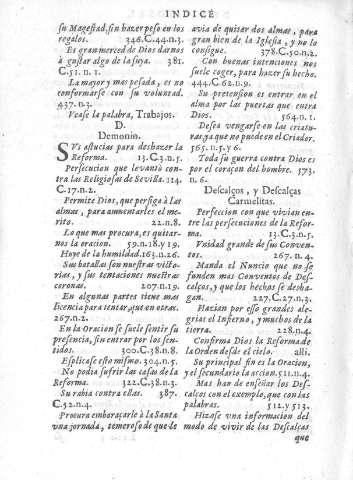 INDICE
su Magestad, sin hazer peso en los
regalos. 346.C.44.n.3.
Es gran merced de Dios darnos
à gustar algo de la suya. 381.
C.51. n. 1.
La mayor y mas pesada, es no
conformarse con su voluntad.
437.n.3.
Vease la palabra, Trabajos.
D.
Demonio.
SVs astucias para deshazer la
Reforma. 13.C.3.n.5.
Persecucion que levantò con-
tra las Religiosas de Sevilla. 114.
C.17.n.2.
Permite Dios, que persiga à las
almas, para aumentarles el me-
rito. 22.n.8.
Lo que mas procura, es quitar-
nos la oracion. 59.n.18.y 19.
Huye de la humildad. 163.n.26.
Sus batallas son nuestras victo-
rias, y sus tentaciones nuestras
coronas. 207.n.19.
En algunas partes tiene mas
licencia para tentar, que en otras.
267.n.2.
En la Oracion se suele sentir su
presencia, sin entrar por los sen-
tidos. 300.C.38.n.8.
Esplicase esto mismo. 304.n.5.
No podia sufrir las casas de la
Reforma. 322.C.38.n.3.
Su rabia contra ellas. 387.
C.52.n.4.
Procura embaraçarle à la Santa
vna jornada, temeroso de que de
avia de quitar dos almas, para
gran bien de la Iglesia, y no lo
consigue. 378.C.50.n.2.
Con buenas intenciones nos
suele coger, para hazer su hecho.
444.C 62.n.9.
Su pretension es entrar en el
alma por las puertas que entra
Dios. 564.n.1.
Desea vengarse en las criatu-
ras, ya que no puede en el Criador.
565.n.5.y 6.
Toda su guerra contra Dios es
por el coraçon del hombre. 573.
n.6.
Descalços, y Descalças
Carmelitas.
Perfeccion con que vivian en-
tre las persecuciones de la Refor-
ma. 13.C.3.n.5.
Vnidad grande de sus Conven-
tos. 267. n. 4.
Manda el Nuncio que no se
funden mas Conventos de Des-
calços, y que los hechos se desha-
gan. 227.C.27.n.3.
Hazian por esso grandes ale-
grias el Infierno, y muchos de la
tierra. 228.n.4.
Confirma Dios la Reforma de
la Orden desde el cielo. alli.
Su principal fin es la Oracion,
y el secundario la accion. 511.n.4.
Mas han de enseñar los Des-
calços con el exemplo, que con las
palabras. 512.y 513.
Hizose vna informacion del
modo de vivir de las Descalças
que